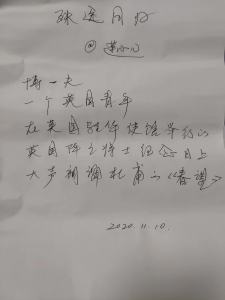 殊途同归
@莲心
博一夫
一个英国青年
在英国驻华使馆举行的
英国阵亡将士纪念日上
大声朗诵杜甫的《春望》
2020.11.10.